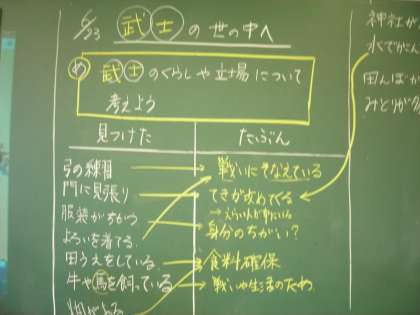 6/23 武士の世の中へ
め 武士のくらしや立場について
考えよう
見つけた
たぶん
弓の練習
戦いにそなえている
門に見張り
てきが攻めてくる
服装がちがう
→えらい人が中にいる
身分のちがい?
よろいを着てる
田うえをしている
食料確保
牛や馬を飼っている
戦いや生活のため
畑がある
神社が
水でかこ
田んぼ
みどりが